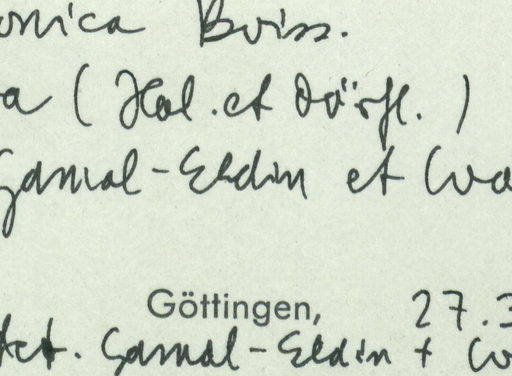 onica Boiss.
a (Hal. et Dörfl.)
Gamal-Eldin et Wa
Göttingen, 27.3
det. Gamal-Eldin + W